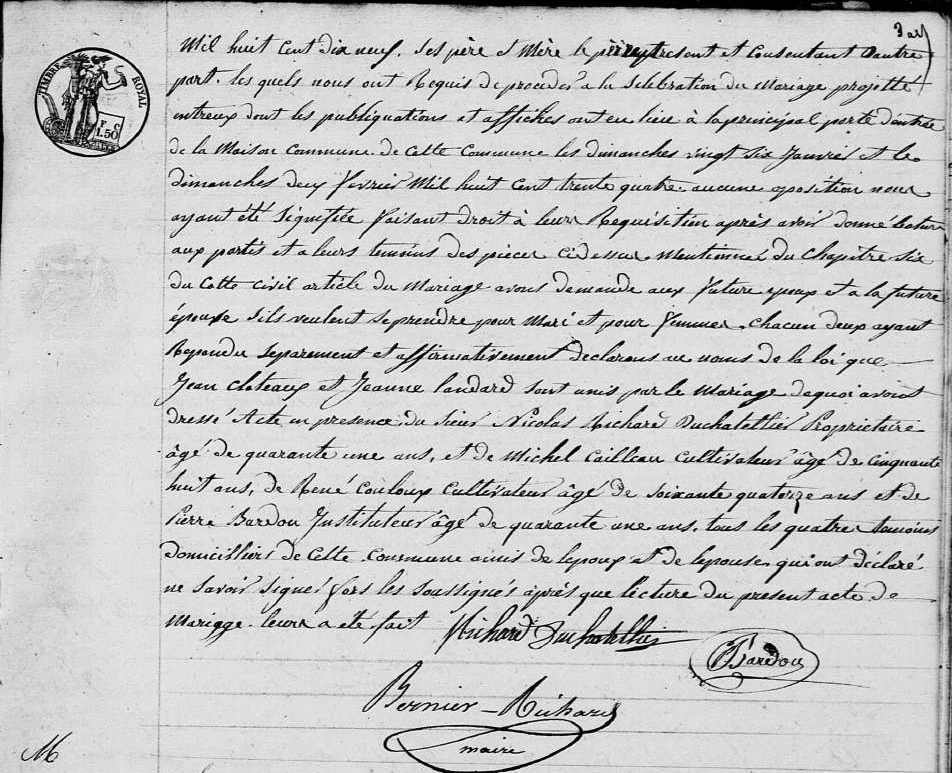 TIMBRE ROYAL
F C
1.50
Mil huit Cent dix neuf, ses père et Mère le present et Consentant Dautre
part. les quels nous ont Requis de proceder a la Selebration du Mariage projetté
entreux dont les publiquations et affiches ont eu lieu à la principal porte d'entrée
de la Maison Commune de Cette Commune les dimanches vingt six Janvier et le
dimanches deux fevrier Mil huit Cent trente quatre. aucune oposition nous
ayant été Signifiée faisant droit à leur Requisition après avoir donné lecture
aux partis et a leurs temoins des pieces Cidessus Mentionnés du Chapitre Six
du Cotte civil article du Mariage avons demande aux future epoux et a la future
épouse Sils veulent Se prendre pour Mari et pour femmes. Chacun deux ayant
Repondu Separement et affirmativement declarons au noms de la loi que
Jean Chateaux et Jeanne landard Sont unis par le Mariage dequoi avons
dressé Acte en presence du Sieur Nicolas Richard Duchatellier Proprietaire
âgé de quarante une ans, et de Michel Cailleau Cultivateur âgé de Cinquante
huit ans, de René Couloux Cultivateur âgé de Soixante quatorze ans et de
Pierre Bardou Instituteur âgé de quarante une ans, tous les quatre temoins
domicilliers de Cette Commune amis de lepoux et de lepouse qui ont déclaré
ne Savoir Signer fors les Soussignés après que lecture du present acte de
Mariage leurs a été fait
Richard Duchatellier
Bardou
Bernier - Richard
maire
M